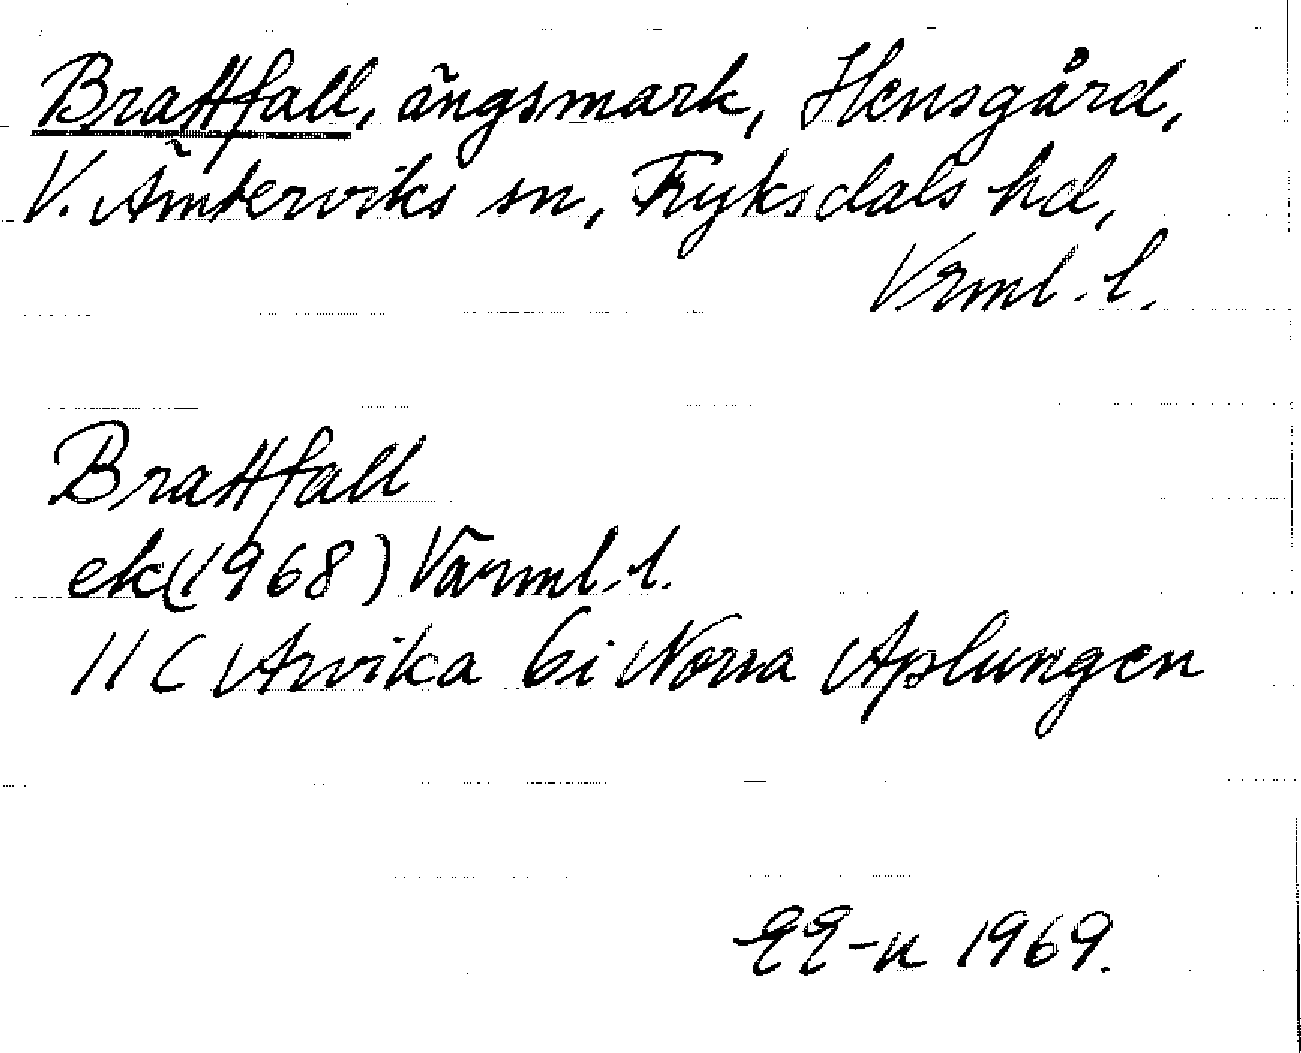 Brattfall, ängsmark, Hensgård,
V. Ämterviks sn, Fryksdals hd,
Vrml. l.
Brattfall
ek (1968) Värml. l.
11 C Arvika 6i Norra Aplungen
EE-n 1969.